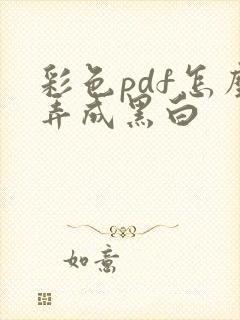 彩色pdf怎么
弄成黑白
如意